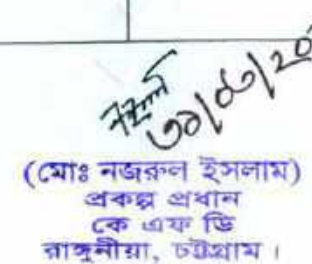 ৩১/০৫/২০
(মোঃ নজরুল ইসলাম)
প্রকল্প প্রধান
কে এফ ডি
রাঙ্গুনীয়া, চট্টগ্রাম।